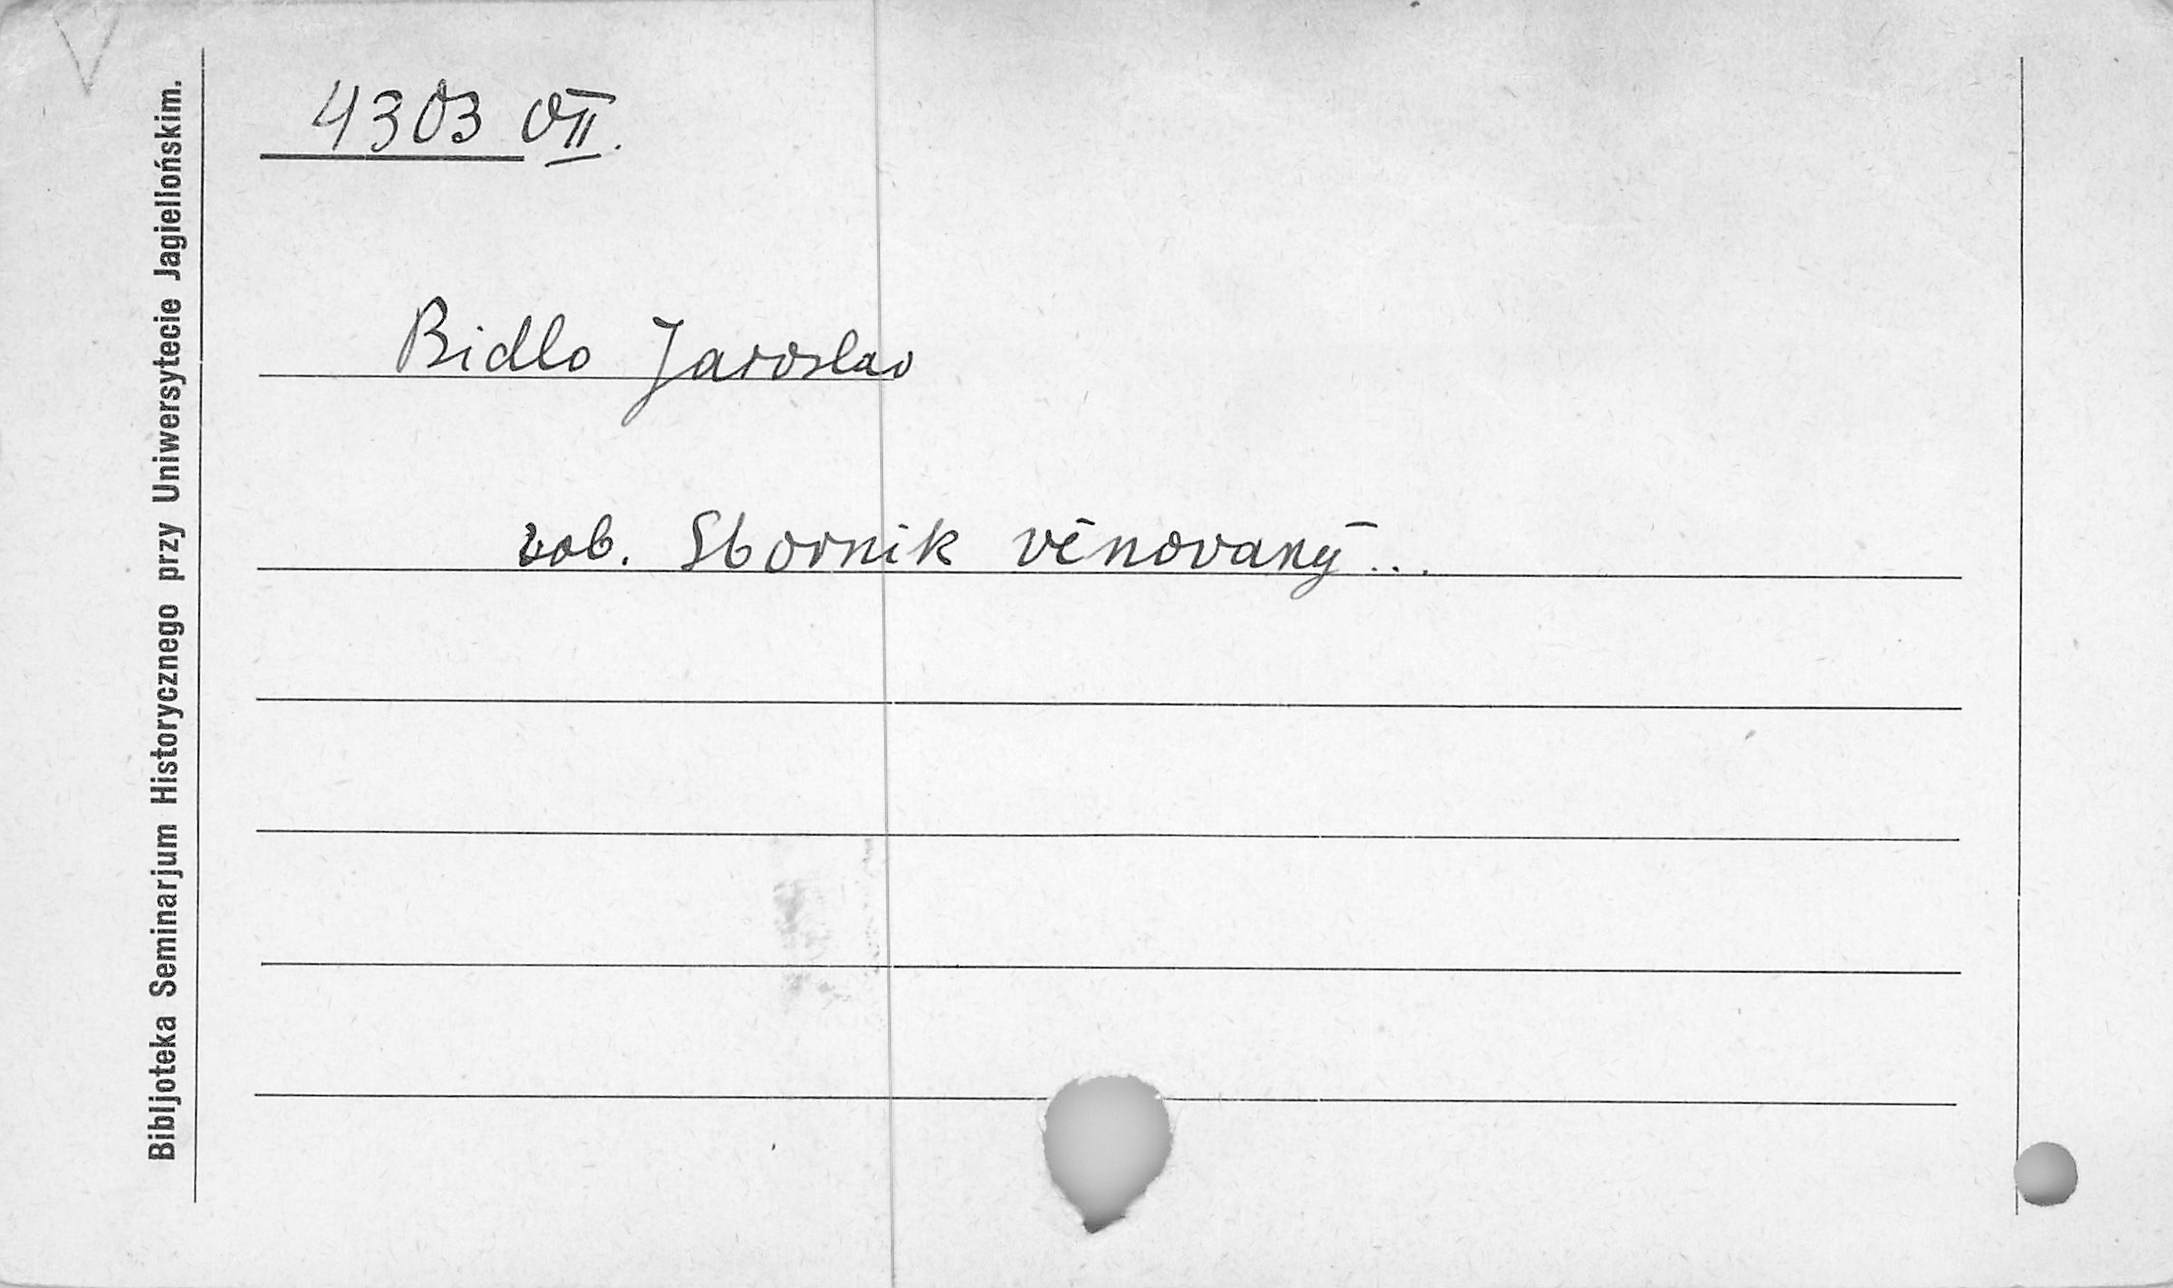 4303 VII.
Bidlo Jaroslav
zob. Sbornik věnovaný...
Bibljoteka Seminarjum Historycznego przy Uniwersytecie Jagiellońskim.